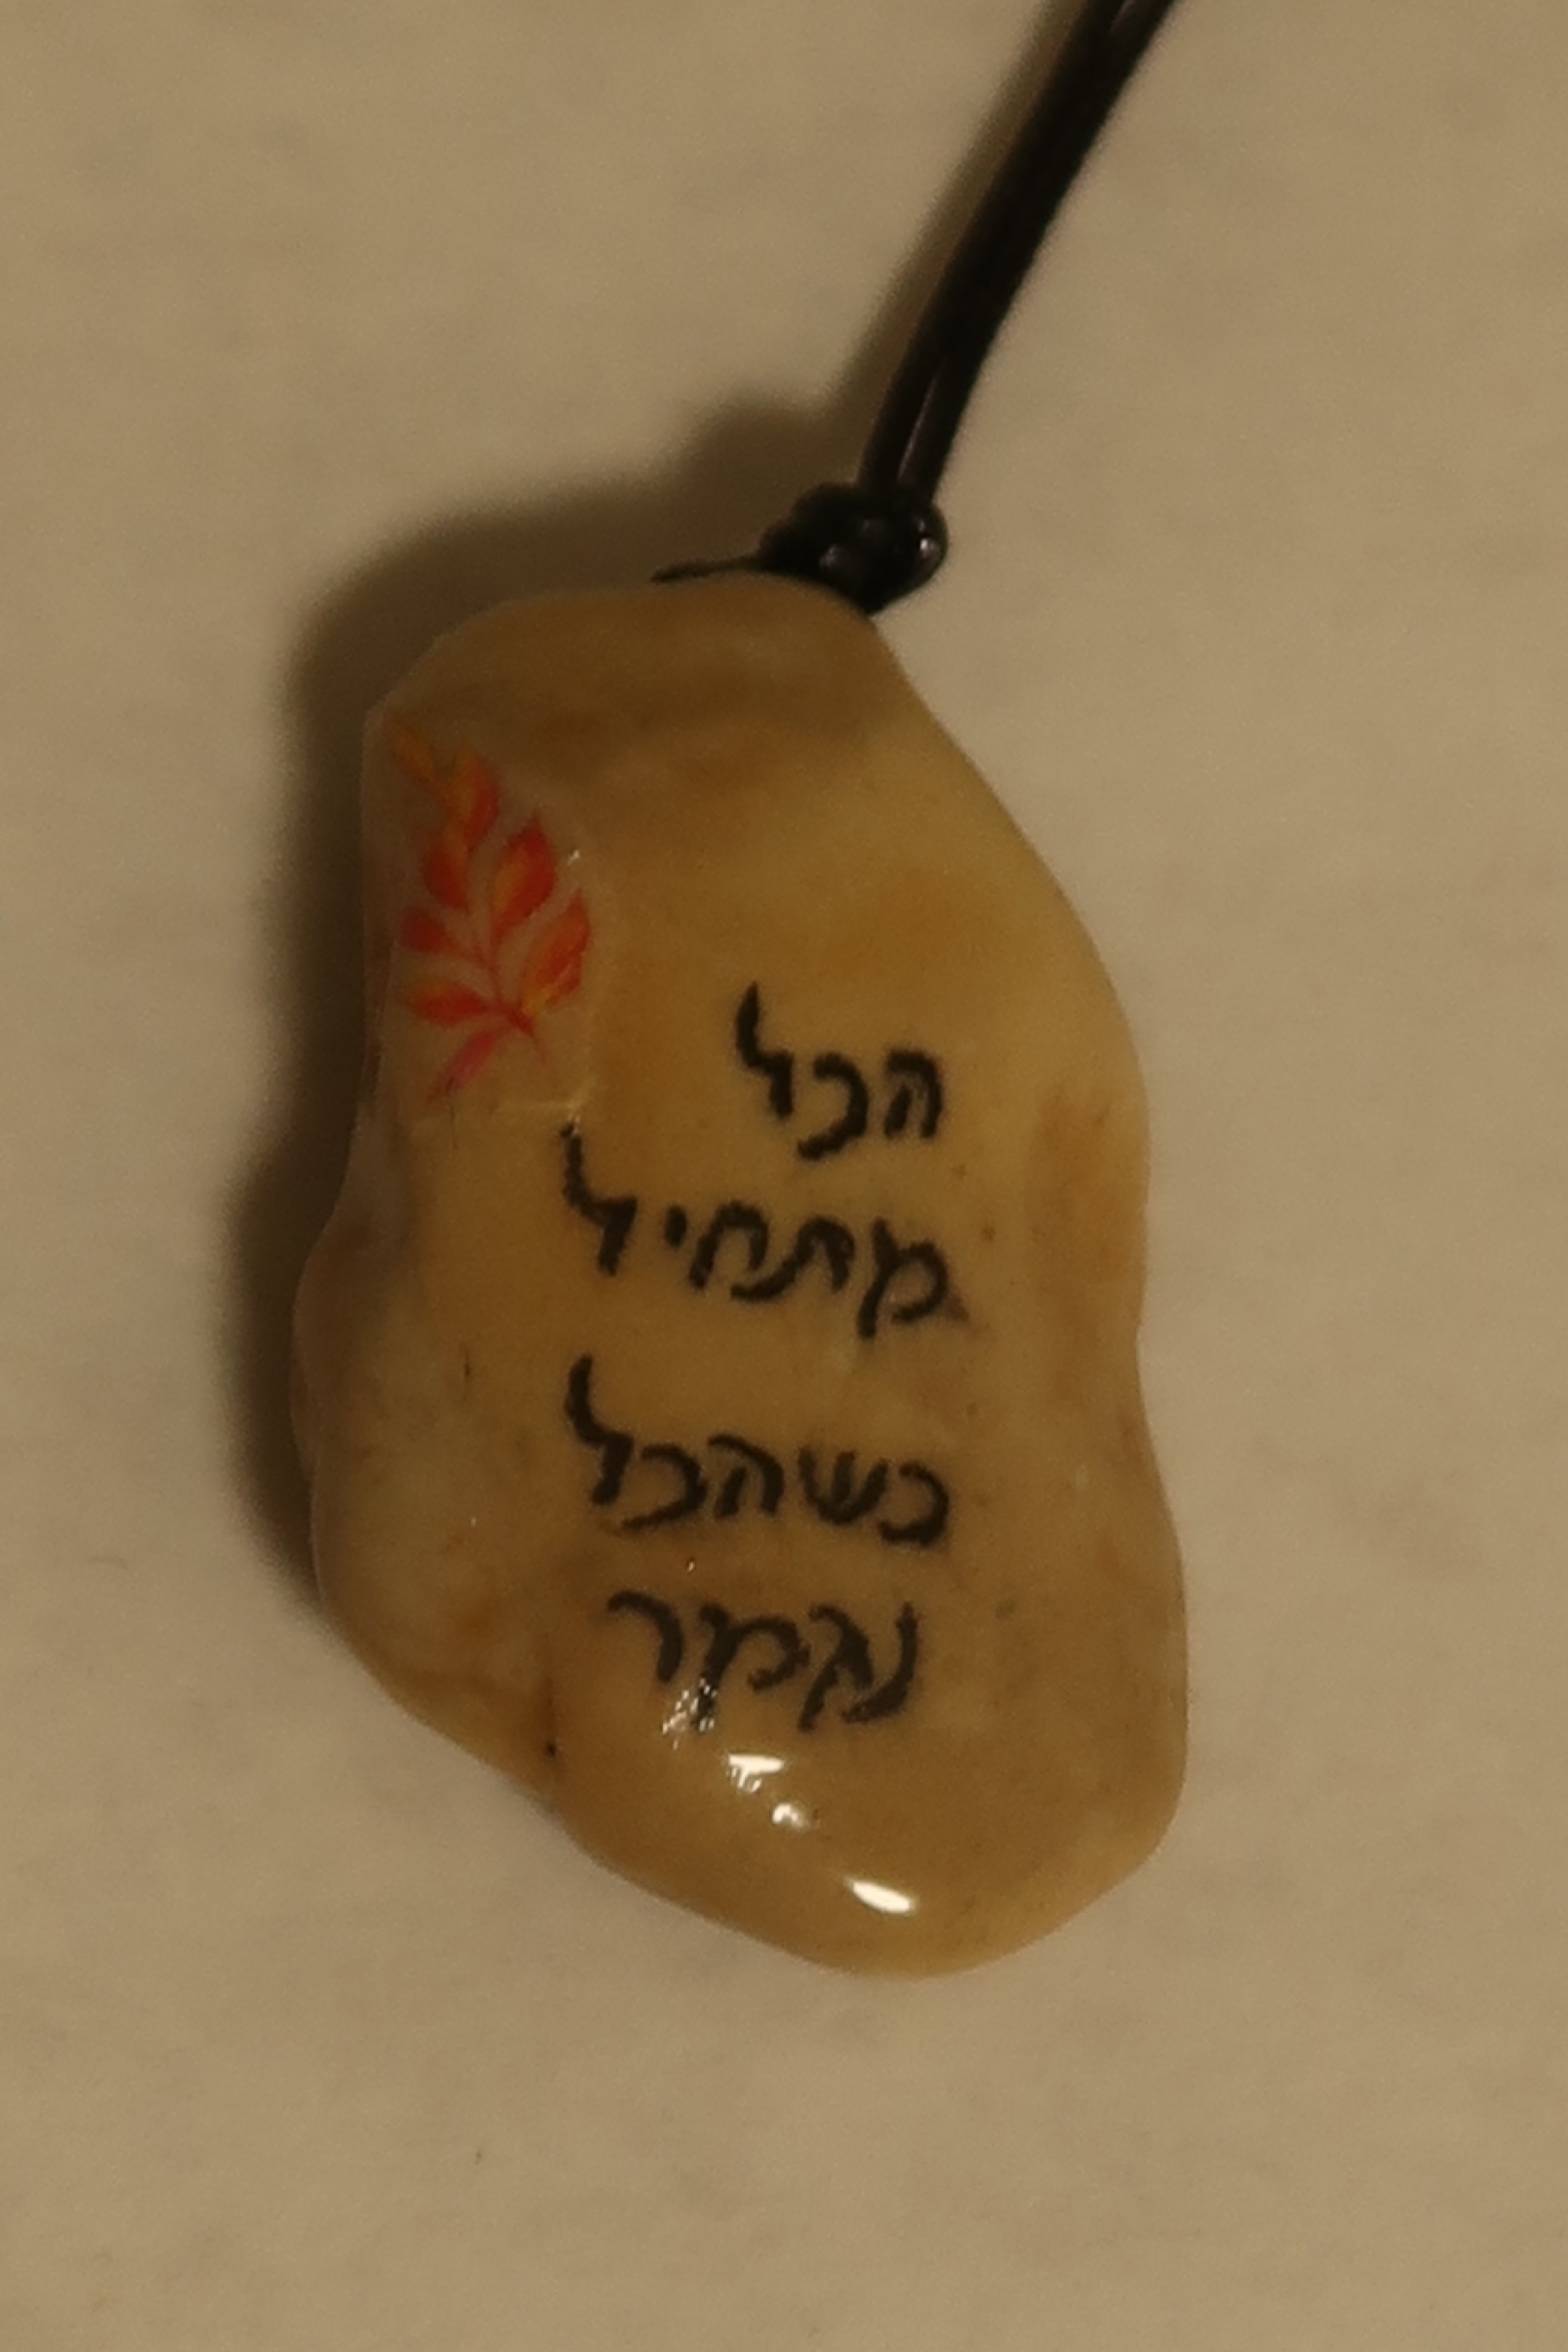 הכל
מתחיל
כשהכל
נגמר